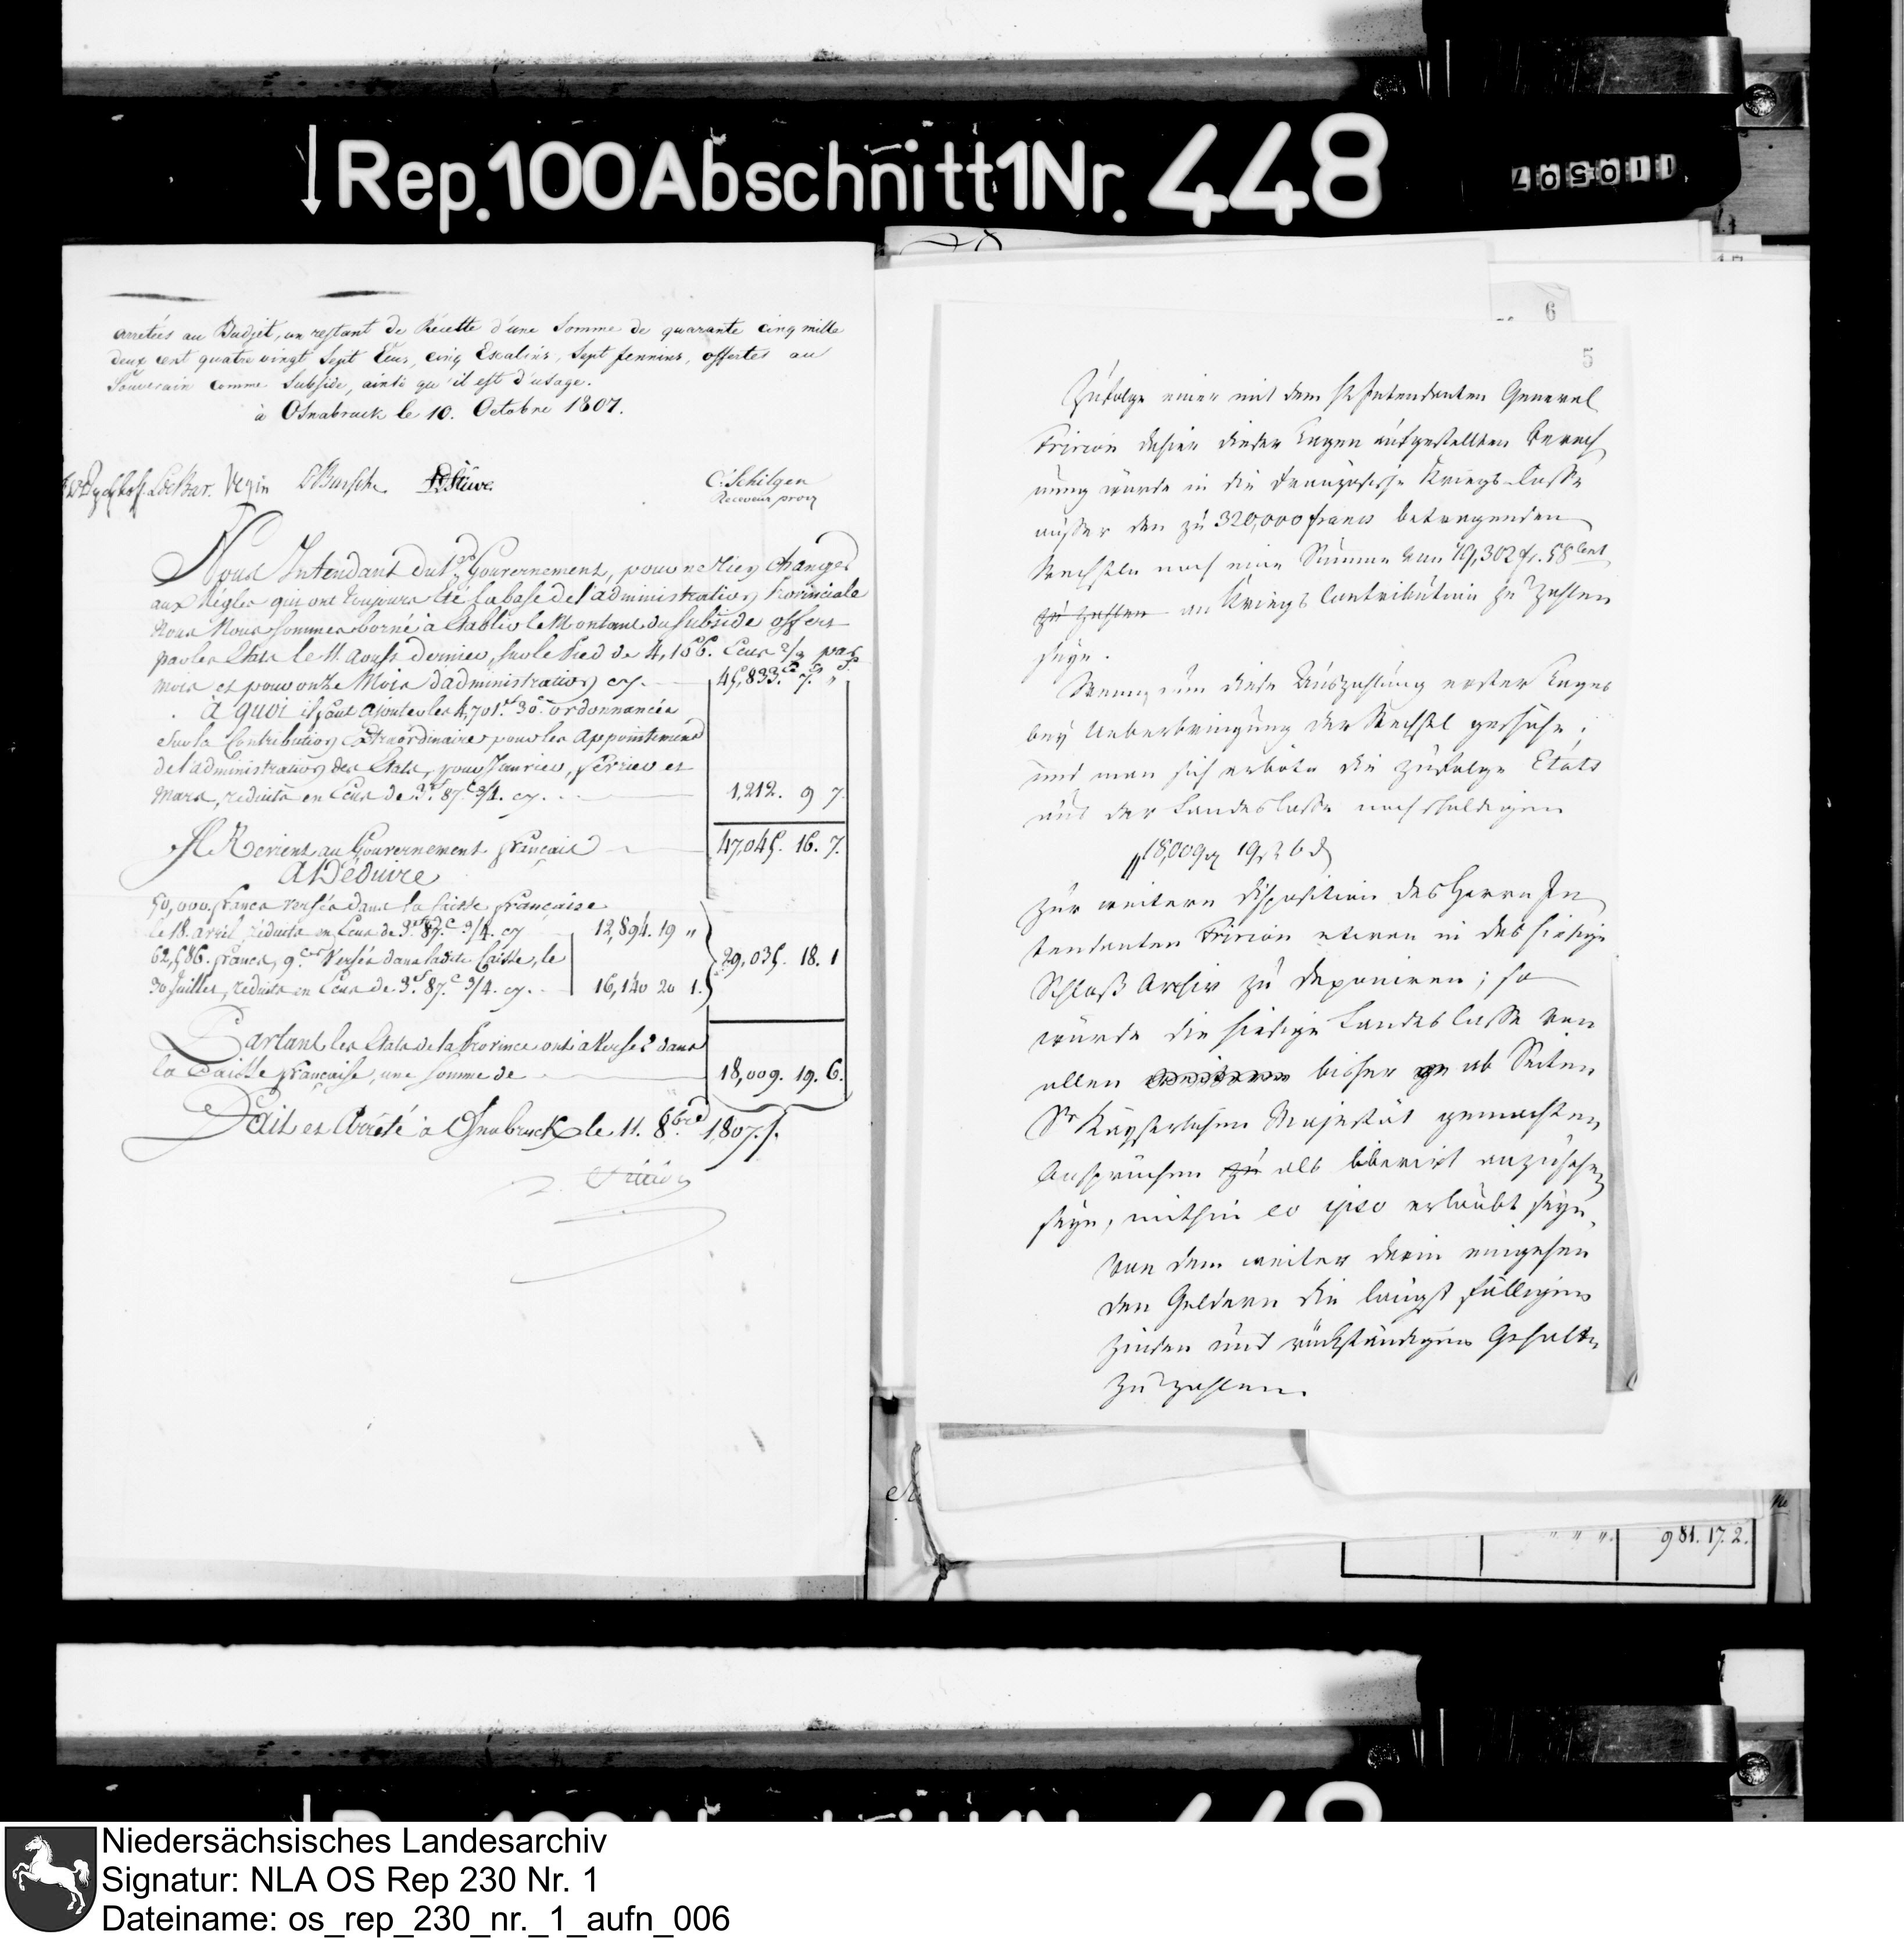 ↓Rep.100Abschnitt1Nr.448
110507
arretées au Budjet, un restant de Récette d'une Somme de quarante cinq mille
deux cent quatre vingt Sept Écus, cinq Escalins, Sept fennins, offertes au
Souverain comme Subside, ainsi qu'il est d'usage.
à Osnabruck le 10. Octobre 1807.
Vezin Stüve. C. Schilgen
Receveur prov
Nous Intendant du 1er Gouvernement, pour ne rien changer
aux Régles qui ont toujours été la base de l'administration Provinciale
Nous Nous sommes borné à établir le Montant du subside offert
par les Etats le 11. Aoust dernier, sur le Pied de 4,166. Ecus 2/3 par
mois et pour onze Mois d'administration cy. 45,833. 7. "
A quoi il faut ajouter les 4,701.f 30.c ordonnancés
sur la Contribution Extraordinaire pour les appointemens
de l'administration des Etats, pour Janvier, Février et
Mars, réduits en Ecus de 3.f 87.c 3/4. cy. 1,212. 9 7.
Il Revient au Gouvernement français 47,045. 16. 7.
A Déduire
50,000 francs versés dans la Caisse française
le 18. avril, réduits en Ecus de 3.f 87.c 3/4. cy 12,894. 19 "
62,586. francs, 9.ces versés dans ladite Caisse, le
30 Juillet, réduits en Ecus de 3.f 87.c 3/4. cy. 16,140 20 1. 29,035. 18. 1
Partant les Etats de la Province ont à verser dans
la Caisse française, une somme de 18,009. 19. 6.
Fait et Arrêté à Osnabruck le 11. 8bre 1807.
Fririon
6
5
Zufolge einer mit dem H Intendanten General
Fririon dahier dieser Tagen aufgestellten Berech
nung würde in die Französische Kriegs-Casse
außer den zu 320,000 francs betragenden
Wechseln noch eine Summe von 19,302 fr. 58 Cent
zu zahlen an Kriegs Contribution zu zahlen
seyn.
Wenn nun diese Auszahlung erster Tages
bey Ueberbringung der Wechsel geschähe;
und man sich erböte die zufolge Etats
aus der Landes Casse noch schuldigen
18,009 rt 19 s 6 d
zur weitern Disposition des Herrn In
tendanten Fririon etwan in das hiesige
Schloß Archiv zu deponiren; so
würde die hiesige Landes Casse von
allen bisher ge ab Seiten
Sr Kayserlichen Majestät gemachten
Ansprüchen zu als liberirt anzusehen
seyn, mithin eo ipso erlaubt seyn,
von dem weiter darin eingehen
den Geldern die längst fälligen
Zinsen und rückständigen Gehalte
zu zahlen.
" " " 981. 17. 2.
Niedersächsisches Landesarchiv
Signatur: NLA OS Rep 230 Nr. 1
Dateiname: os_rep_230_nr._1_aufn_006